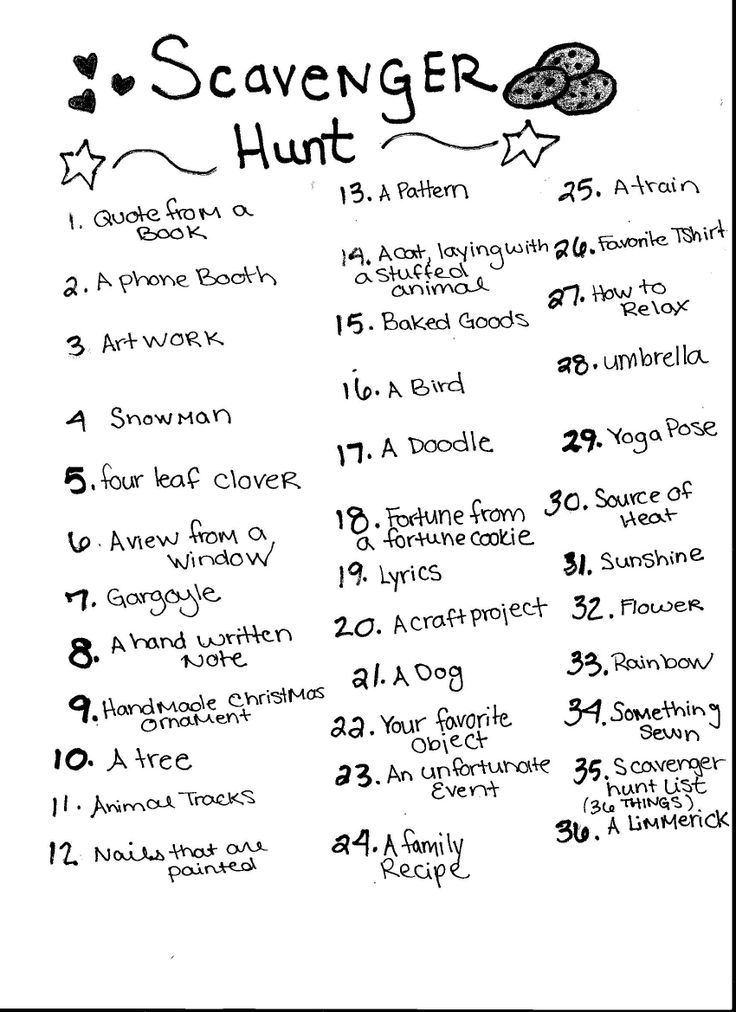 Scavenger
Hunt
1. Quote from a
Book
2. A phone Booth
3 Art work
4 Snowman
5. four leaf clover
6. A view from a
window
7. Gargoyle
8. A hand written
Note
9. Handmade Christmas
ornament
10. A tree
11. Animal Tracks
12 Nails that are
painted
13. A Pattern
14. A cat, laying with
a stuffed
animal
15. Baked Goods
16. A Bird
17. A Doodle
18. Fortune from
a fortune cookie
19. Lyrics
20. A craft project
21. A Dog
22. Your favorite
Object
23. An unfortunate
Event
24. A family
Recipe
25. A train
26. Favorite TShirt
27. How to
Relax
28. umbrella
29. Yoga Pose
30. Source of
Heat
31. Sunshine
32. Flower
33. Rainbow
34. Something
Sewn
35. Scavenger
hunt List
(36 THINGS)
36. A Limmerick